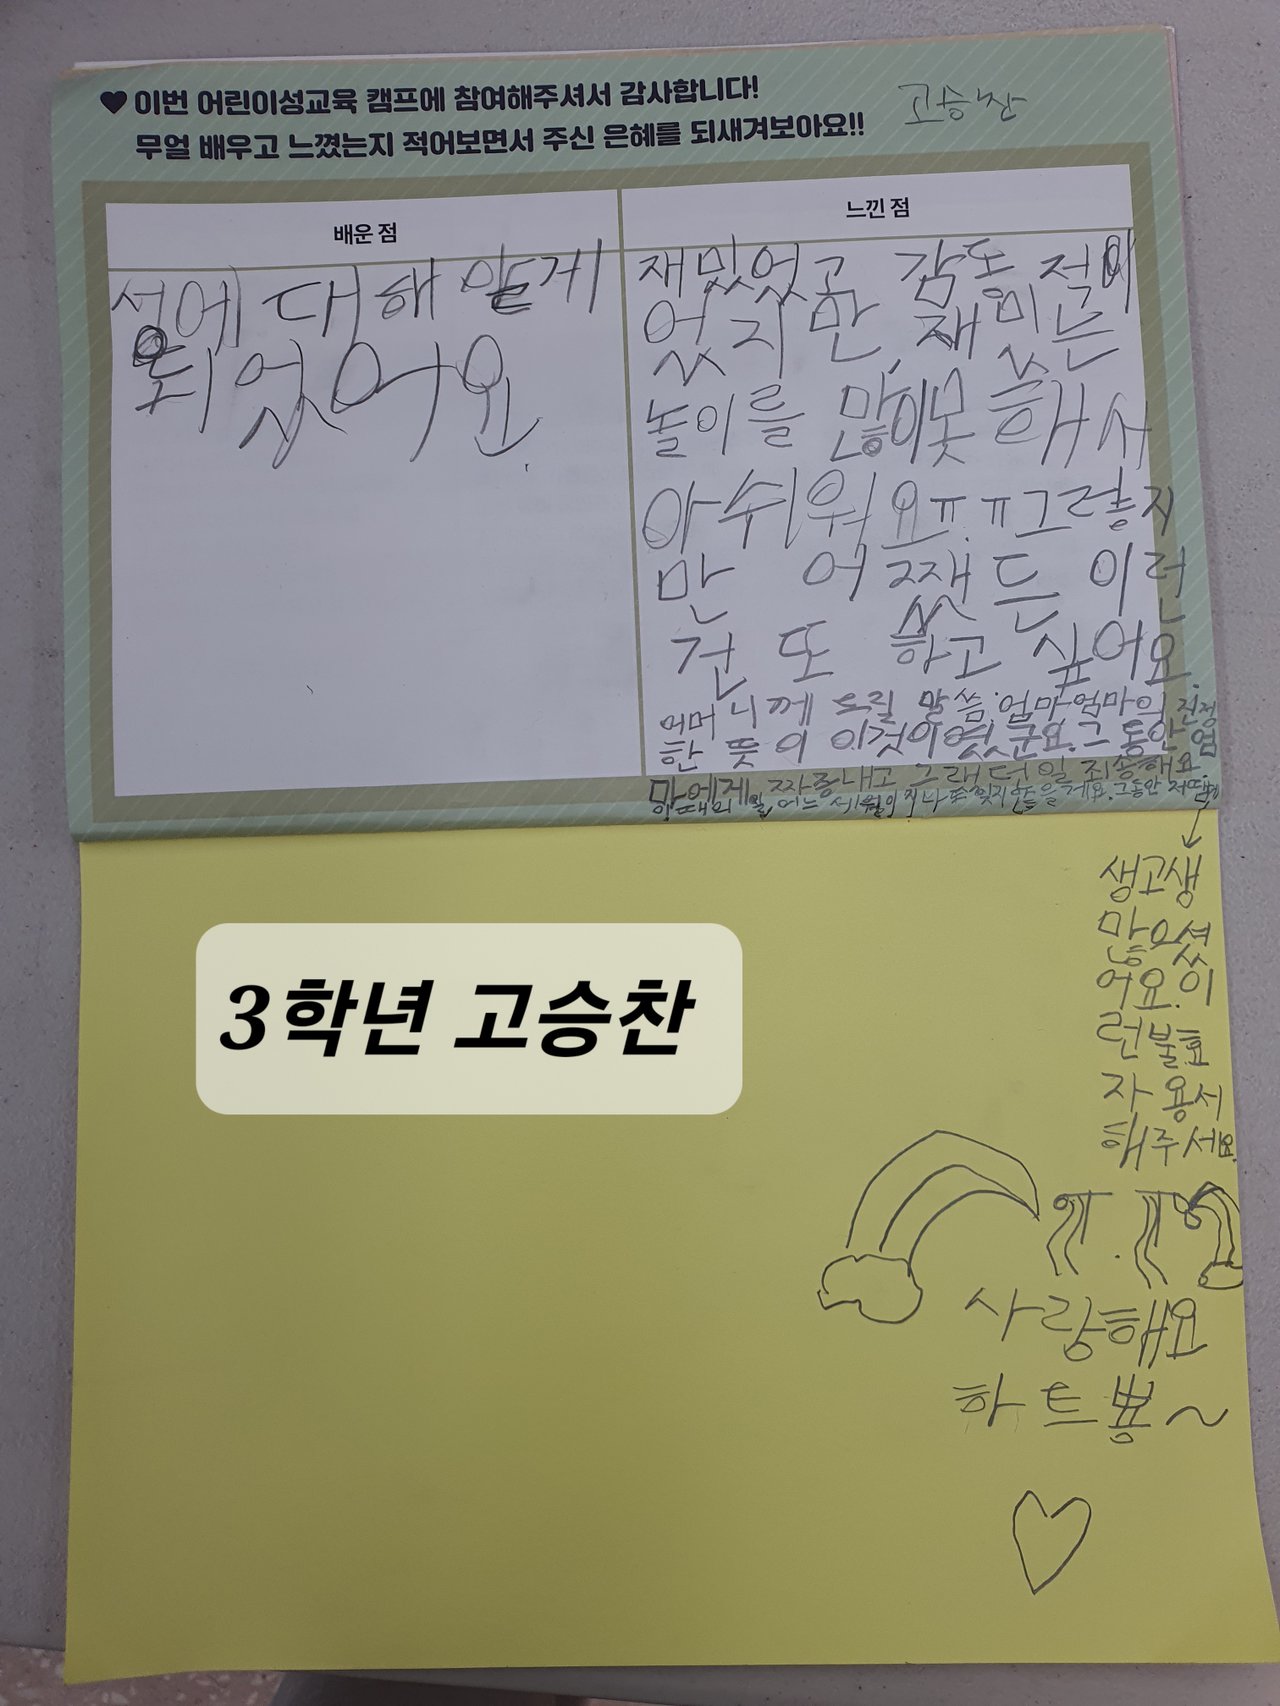 ♥ 이번 어린이성교육 캠프에 참여해주셔서 감사합니다!
무얼 배우고 느꼈는지 적어보면서 주신 은혜를 되새겨보아요!!
고승찬
배운 점
성에 대해 알게
되었어요.
느낀 점
재밌었고, 감동적이
었지만, 재밌는
놀이를 많이못 해서
아쉬워요ㅠ.ㅠ그렇지
만 어쨌든 이런
건 또 하고 싶어요.
어머니께 드릴 말씀. 엄마 엄마의 진정
한 뜻이 이것이였군요. 그 동안 엄
마에게 짜증내고 그래더 일 죄송해요.
이때의 일, 어느 세월이 지나도 잊지 않을게요. 그동안 저땜에
생고생
많으셨
어요. 이
런불효
자 용서
해주세요.
ㅠ.ㅠ
사랑해요
하트뿅~
3학년 고승찬